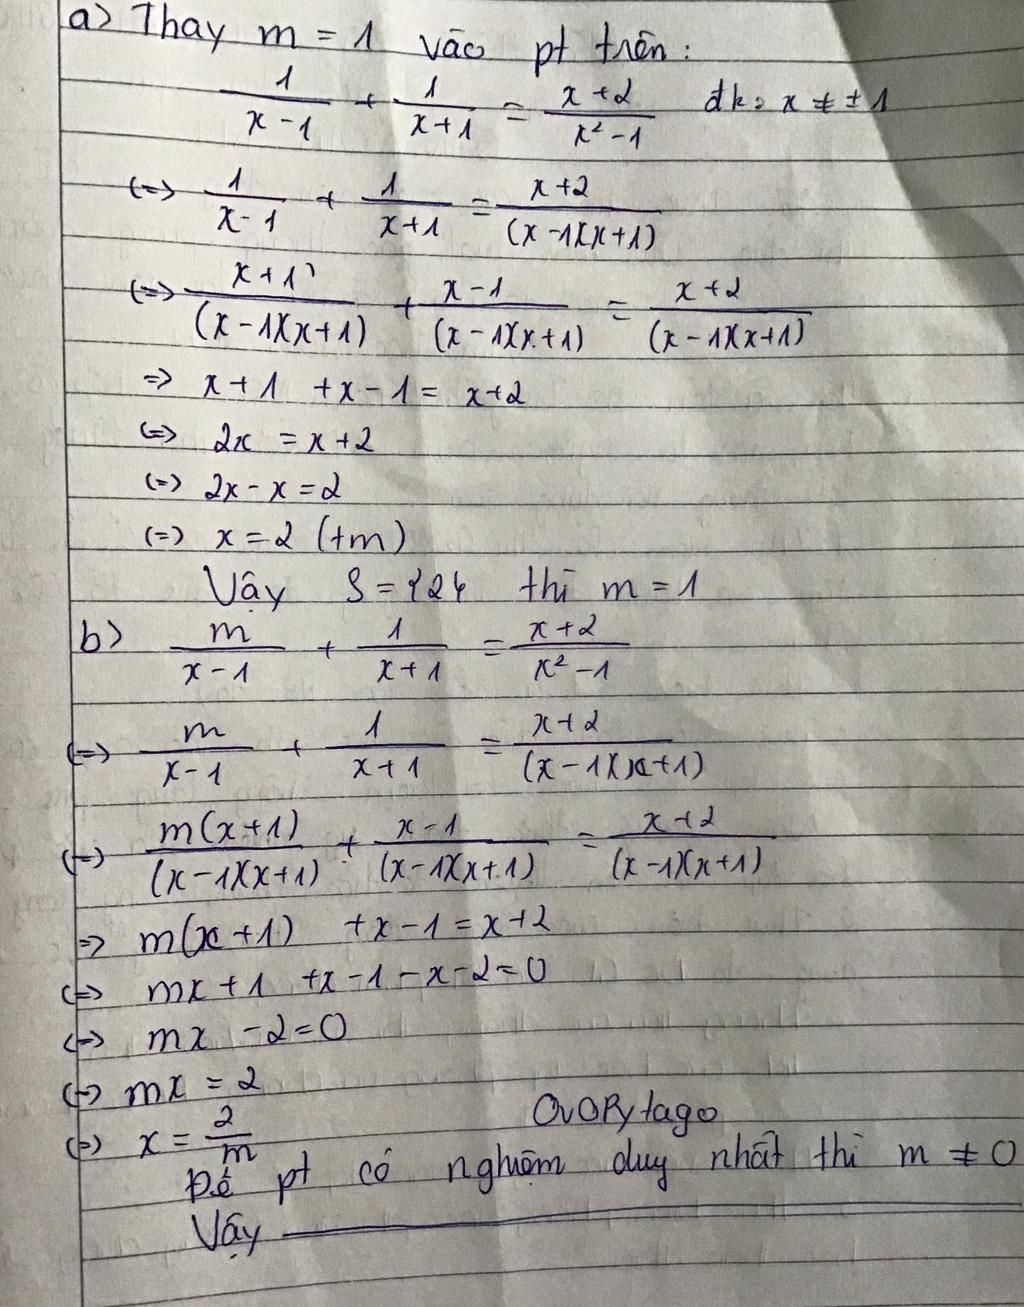 a) Thay m = 1 vào pt trên:
1/(x-1) + 1/(x+1) = (x+2)/(x²-1) đk: x ≠ ±1
(=) 1/(x-1) + 1/(x+1) = (x+2)/((x-1)(x+1))
(=) (x+1)/((x-1)(x+1)) + (x-1)/((x-1)(x+1)) = (x+2)/((x-1)(x+1))
=> x+1 +x-1 = x+2
(=) 2x = x+2
(=) 2x-x=2
(=) x=2 (tm)
Vậy S={2} thì m=1
b) m/(x-1) + 1/(x+1) = (x+2)/(x²-1)
(=) m/(x-1) + 1/(x+1) = (x+2)/((x-1)(x+1))
(=) m(x+1)/((x-1)(x+1)) + (x-1)/((x-1)(x+1)) = (x+2)/((x-1)(x+1))
=> m(x+1) +x-1=x+2
(=) mx+1 +x-1-x-2=0
(=) mx -2=0
(=) mx = 2
(=) x = 2/m
OvOPytago
Để pt có nghiệm duy nhất thì m ≠ 0
Vậy